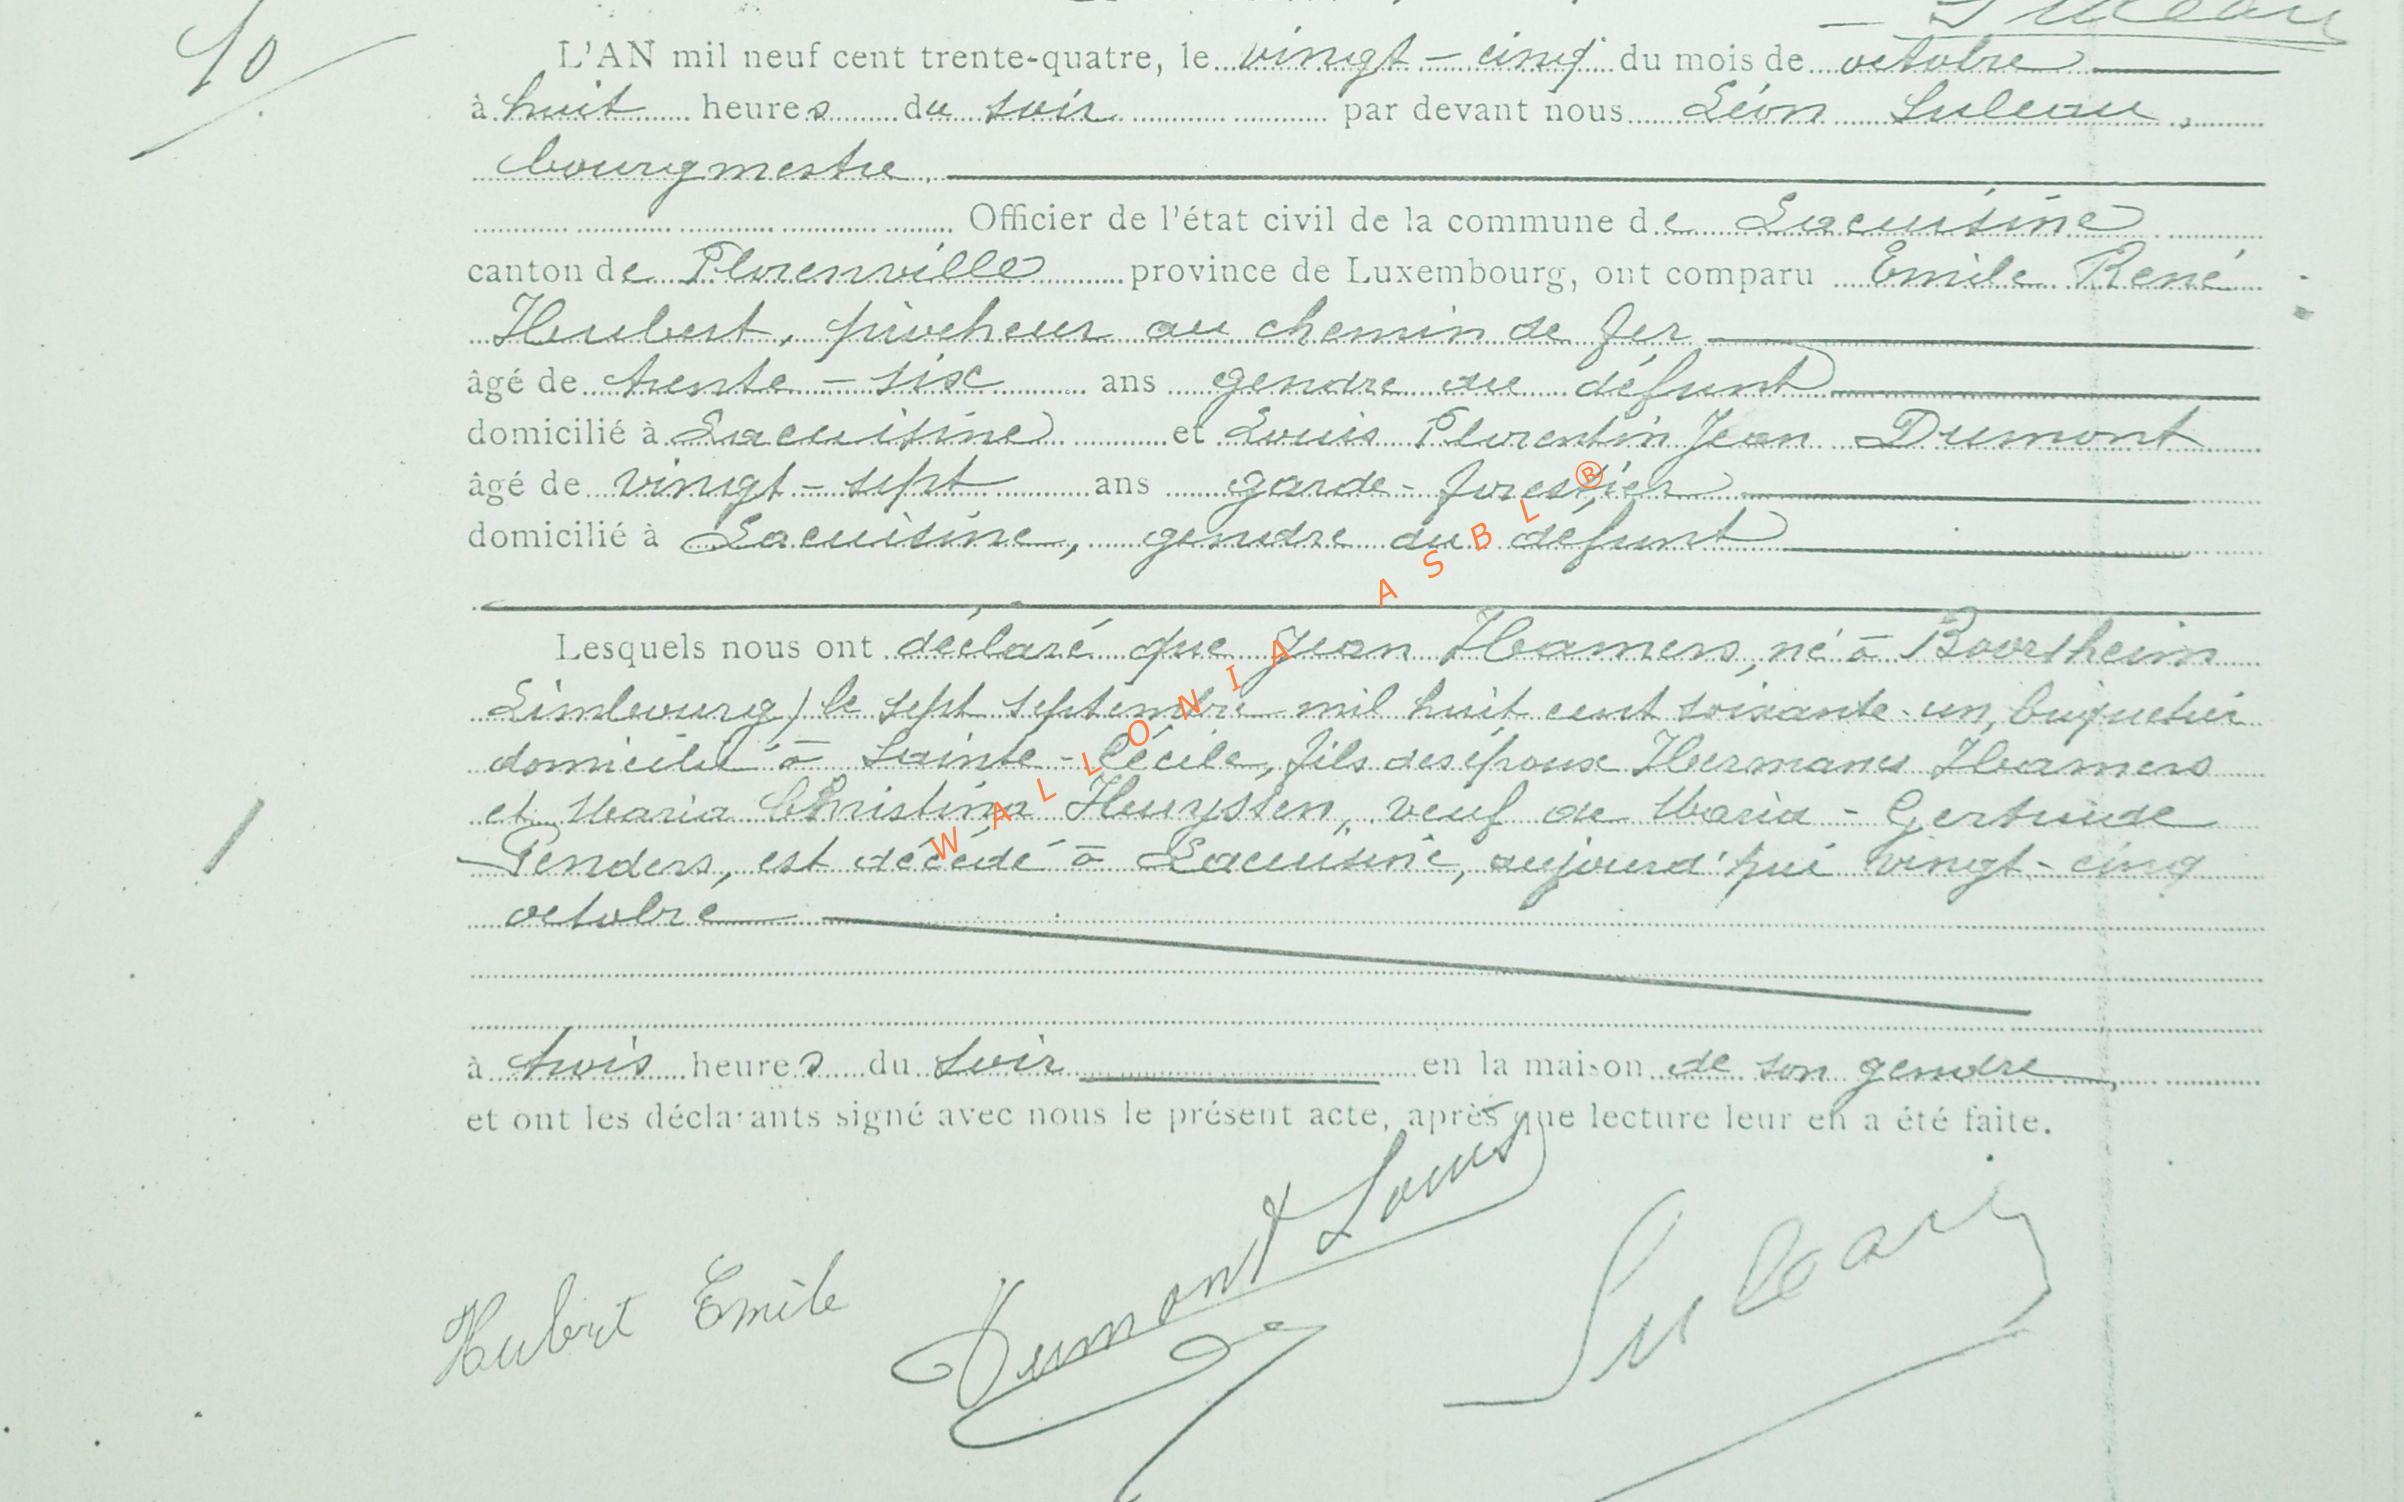 Suleau
10
L'AN mil neuf cent trente-quatre, le vingt-cinq du mois de octobre
à huit heures du soir par devant nous Léon Suleau,
bourgmestre,
Officier de l'état civil de la commune de Lacuisine
canton de Florenville province de Luxembourg, ont comparu Emile René
Hubert, piocheur au chemin de fer
âgé de trente-six ans gendre du défunt
domicilié à Lacuisine et Louis Florentin Jean Dumont
âgé de vingt-sept ans garde-forestier
domicilié à Lacuisine, gendre du défunt
Lesquels nous ont déclaré que Jean Hamers, né à
Limbourg) le sept septembre mil huit cent soixante-un, briquetier
domicilié à Sainte-Cécile, fils des époux Hermanus Hamers
et Maria Christina Heuyssen, veuf de Maria-Gertrude
Penders, est décédé à Lacuisine, aujourd'hui vingt-cinq
octobre
à trois heures du soir en la maison de son gendre,
et ont les déclarants signé avec nous le présent acte, après que lecture leur en a été faite.
Hubert Emile
Dumont Louis
Suleau
WALLONIA ASBL ®